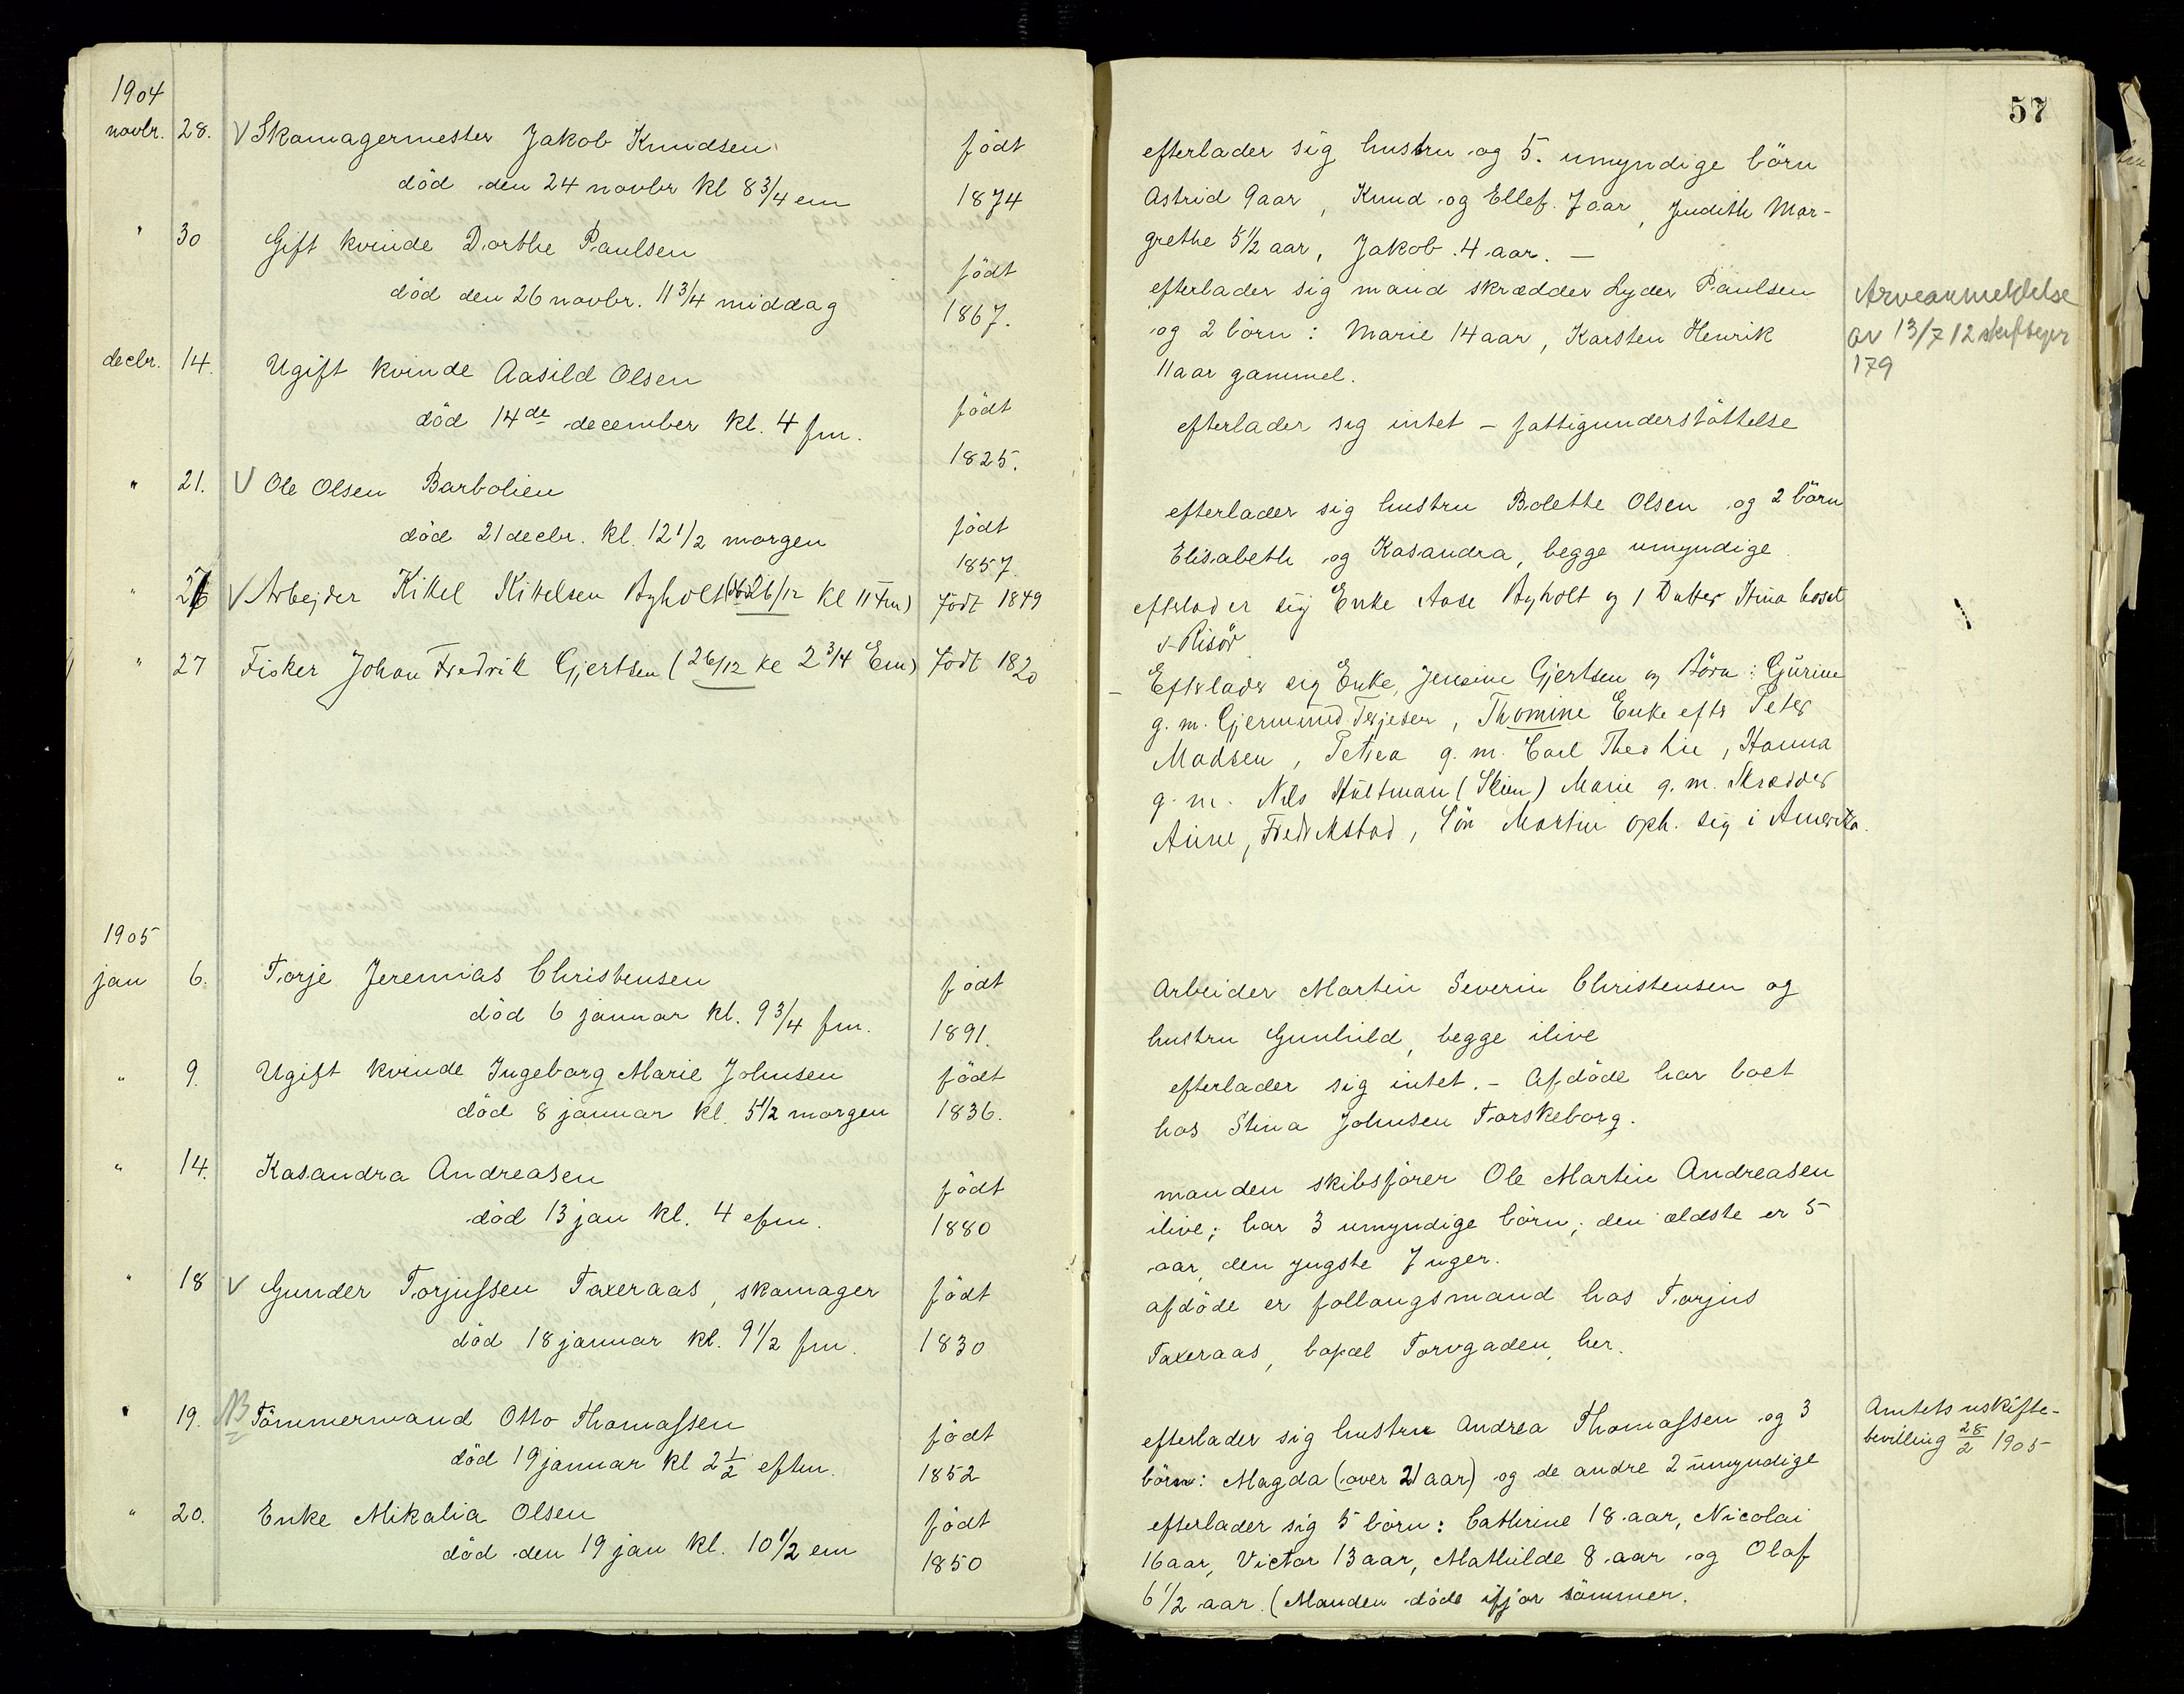 57
1904
novbr. 28. V Skomagermester Jakob Knudsen født
død den 24 novbr kl 8 3/4 em 1874
efterlader sig hustru og 5. umyndige börn
Astrid 9 aar, Knud og Ellef. 7 aar, Judith Mar-
grethe 5 1/2 aar, Jakob 4 aar. —
" 30 Gift kvinde Dorthe Paulsen födt
död den 26 novbr. 11 3/4 middag 1867.
efterlader sig mand skrædder Lyder Paulsen
og 2 börn: Marie 14 aar, Karsten Henrik
11 aar gammel.
Arveanmeldelse
av 13/7 12 skiftepr
179
decbr. 14. Ugift kvinde Aasild Olsen födt
död 14de december kl. 4 fm. 1825.
efterlader sig intet – fattigunderstöttelse
" 21. V Ole Olsen Barbolien födt
död 21 decbr. kl. 12 1/2 morgen 1857.
efterlader sig hustru Bolette Olsen og 2 börn
Elisabeth og Kasandra, begge umyndige
" 27 V Arbejder Kittel Kittelsen Byholt (död 26/12 kl 11 Fm) Födt 1849
efterlader sig Enke Aase Byholt og 1 Datter Stina bosat
i Risör
" 27 Fisker Johan Fredrik Gjertsen (26/12 kl 2 3/4 Em) Födt 1820
– Efterlader sig Enke, Jensine Gjertsen og Börn: Gurine
g. m. Gjermund Terjesen, Thomine Enke efter Peter
Madsen, Petrea g. m. Carl Theo Lie, Hanna
g. m. Nils Hultman (Skien) Marie g. m. Skrædder
Aune, Fredrikstad, Sön Martin oph. sig i Amerika.
1905
jan 6. Torje Jeremias Christensen födt
död 6 januar kl. 9 3/4 fm. 1891.
Arbeider Martin Severin Christensen og
hustru Gunhild, begge ilive
" 9. Ugift kvinde Ingeborg Marie Johnsen födt
död 8 januar kl. 5 1/2 morgen 1836.
efterlader sig intet. – Afdöde har boet
hos Stina Johnsen Torskeborg.
" 14. Kasandra Andreasen födt
död 13 jan kl. 4 efm. 1880
manden skibsförer Ole Martin Andreasen
ilive; har 3 umyndige börn; den ældste er 5
aar, den yngste 7 uger.
" 18 V Gunder Torjussen Taxeraas, skomager födt
död 18 januar kl. 9 1/2 fm. 1830
afdöde er follaugsmand hos Torjus
Taxeraas, bopæl Torvgaden, her.
" 19. NB Tömmermand Otto Thomassen födt
död 19 januar kl 2 1/2 eftm. 1852
efterlader sig hustru Andrea Thomassen og 3
börn: Magda (over 21 aar) og de andre 2 umyndige
Amtets uskifte-
bevilling 28/2 1905
" 20. Enke Mikalia Olsen födt
död den 19 jan kl. 10 1/2 em 1850
efterlader sig 5 börn: Cathrine 18 aar, Nicolai
16 aar, Victor 13 aar, Mathilde 8 aar og Olaf
6 1/2 aar. (Manden döde ifjor sommer.